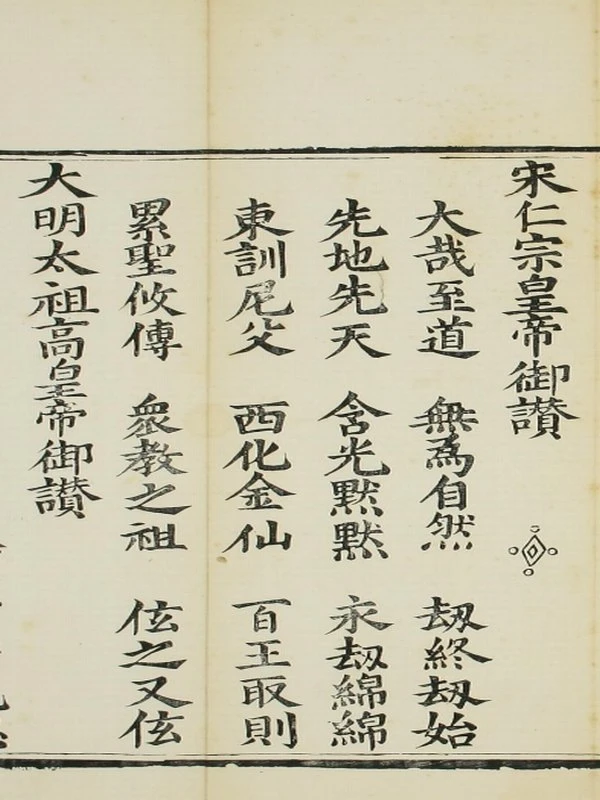 宋仁宗皇帝御讃
大哉至道 無為自然 刼終刼始
先地先天 含光黙黙 永刼綿綿
東訓尼父 西化金仙 百王取則
累聖攸傳 衆教之祖 伭之又伭
大明太祖高皇帝御讃